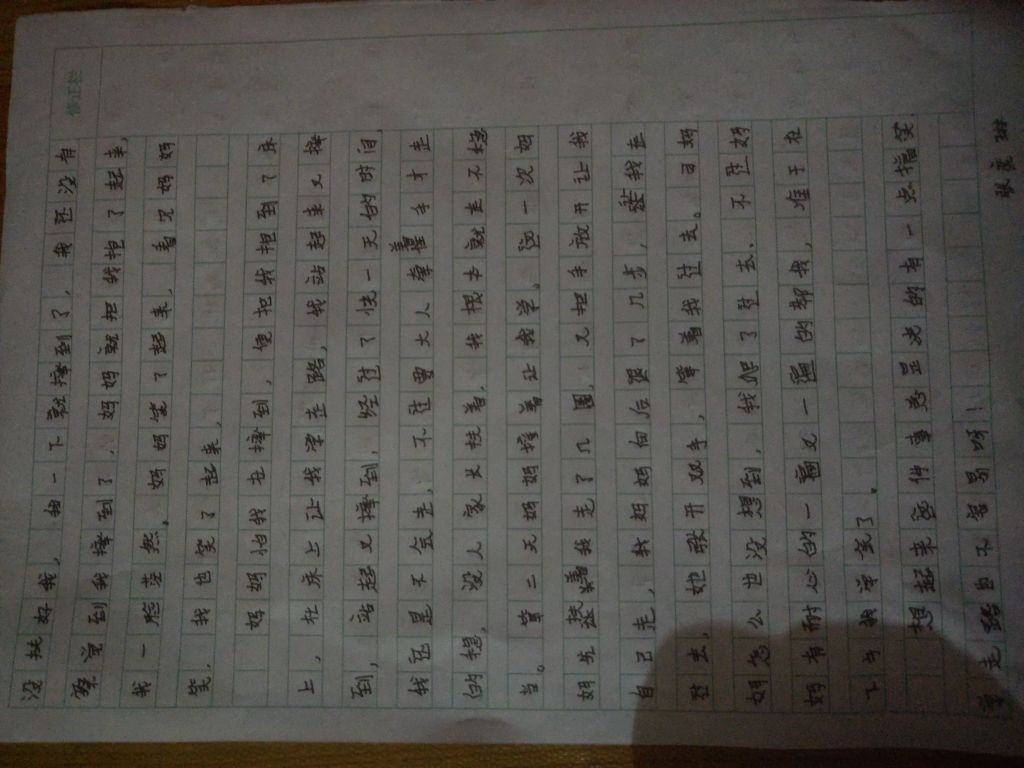 修正栏
没扶好我，独一下就摔到了，我还没有
察觉到我摔到了，妈妈就把我抱了起来，
我一脸茫然。妈妈笑了起来，看见妈妈
笑，我也笑了起来，
妈妈怕我在摔到，便把我抱到了床
上，在床上让我学走路，我站起来又摔
到，站起又摔到，经过了快一天的时间，
我还是不会走，不过要大人牵着手才走
的稳，没人家大扶着，我根本就走不稳
当。第二天妈妈接着让我学。这一次妈
妈先扶着我走了几圈，又把手放开让我
自己走，我妈妈向后退了几步，茫我走
过去，她张开双手，等着我过去。可妈
妈怎么也没想到，我爬了过去，不过妈
妈有耐心的一遍又一遍的帮我，难于在
下午我学会了。
想起来这件事总是说的有一点搞笑，
学走路也不容易呀！